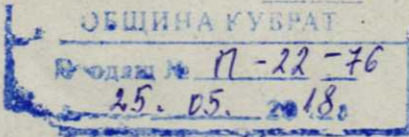 ОБЩИНА КУБРАТ
Входящ № П-22-76
25. 05. 2018г